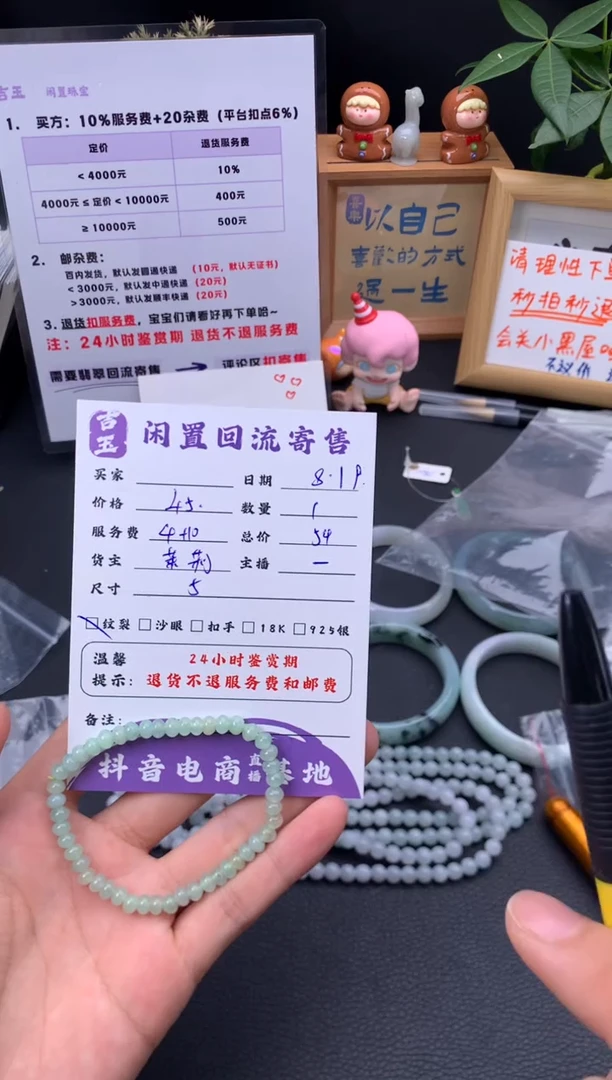 吉玉 闲置珠宝
1. 买方：10%服务费+20杂费（平台扣点6%）
定价 退货服务费
< 4000元 10%
4000元 ≤ 定价 < 10000元 400元
≥ 10000元 500元
2. 邮杂费：
百内发货，默认发圆通快递 （10元，默认无证书）
< 3000元，默认发中通快递 （20元）
>3000元，默认发顺丰快递 （20元）
3. 退货扣服务费，宝宝们请看好再下单哈~
注：24小时鉴赏期 退货不退服务费
需要翡翠回流寄售 评论区扣寄售
喜乐
以自己
喜歡的方式
過一生
清理性下
秒拍秒退
会关小黑屋
不议价
吉玉 闲置回流寄售
买家 日期 8.19
价格 45. 数量 1
服务费 4+10 总价
货主 主播 一
尺寸 5
纹裂 □沙眼 □扣手 □18K □925银
温馨提示： 24小时鉴赏期
退货不退服务费和邮费
备注：
抖音电商直播基地